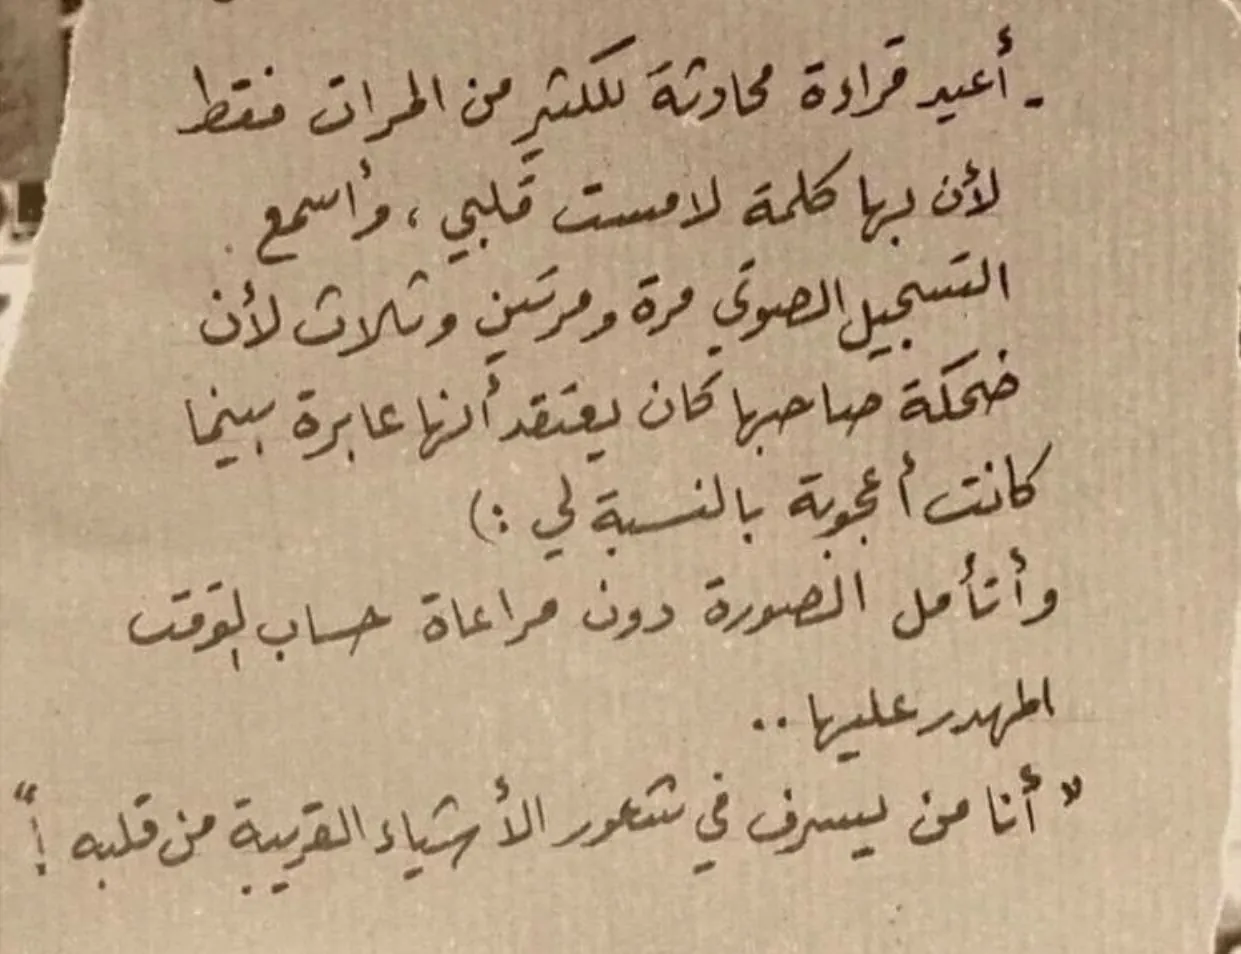 - أعيد قراءة محادثة للكثير من المرات فقط
لأن بها كلمة لامست قلبي ، وأسمع
التسجيل الصوتي مرة ومرتين وثلاث لأن
ضحكة صاحبها كان يعتقد أنها عابرة بينما
كانت أعجوبة بالنسبة لي :)
وأتأمل الصورة دون مراعاة حساب الوقت
المهدر عليها ..
" أنا من يسرف في شعور الأشياء القريبة من قلبه ! "